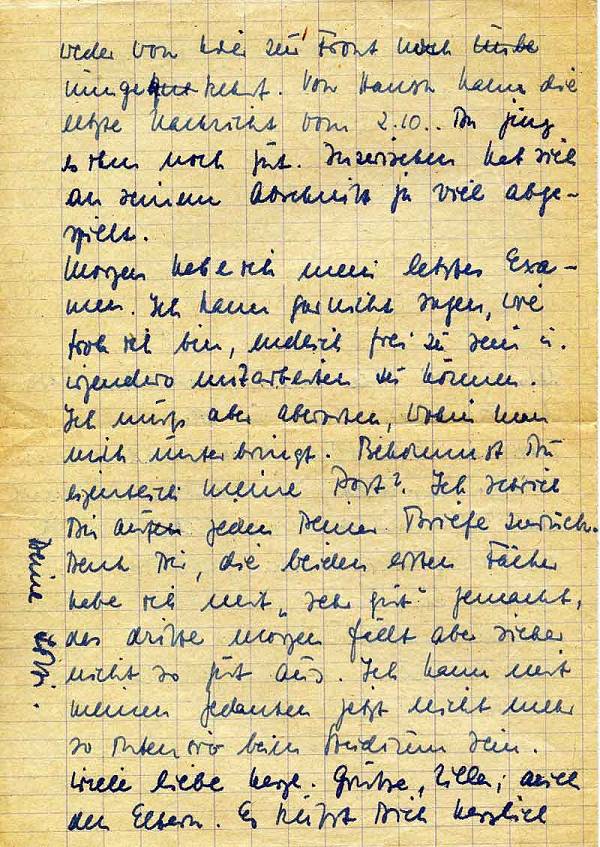 weder von hier zur Front noch
umgekehrt. Von kam die
letzte Nachricht vom 2.10.. Da ging
es ihm noch gut. Inzwischen hat sich
an seinem Abschnitt ja viel abge-
spielt.
Morgen habe ich mein letztes Exa-
men. Ich kann gar nicht sagen, wie
froh ich bin, endlich frei zu sein u.
irgendwo mitarbeiten zu können.
Ich muß aber abwarten, wohin man
mich unterbringt. Bekommst Du
eigentlich meine Post? Ich schrieb
Dir auf jeden Deiner Briefe zurück.
Denk Dir, die beiden ersten Fächer
habe ich mit „sehr gut“ gemacht,
das dritte morgen fällt aber sicher
nicht so gut aus. Ich kann mit
meinen Gedanken jetzt nicht mehr
so beim Studium sein.
Viele liebe herzl. Grüße, auch
den Eltern. Es küßt Dich herzlich
Deine